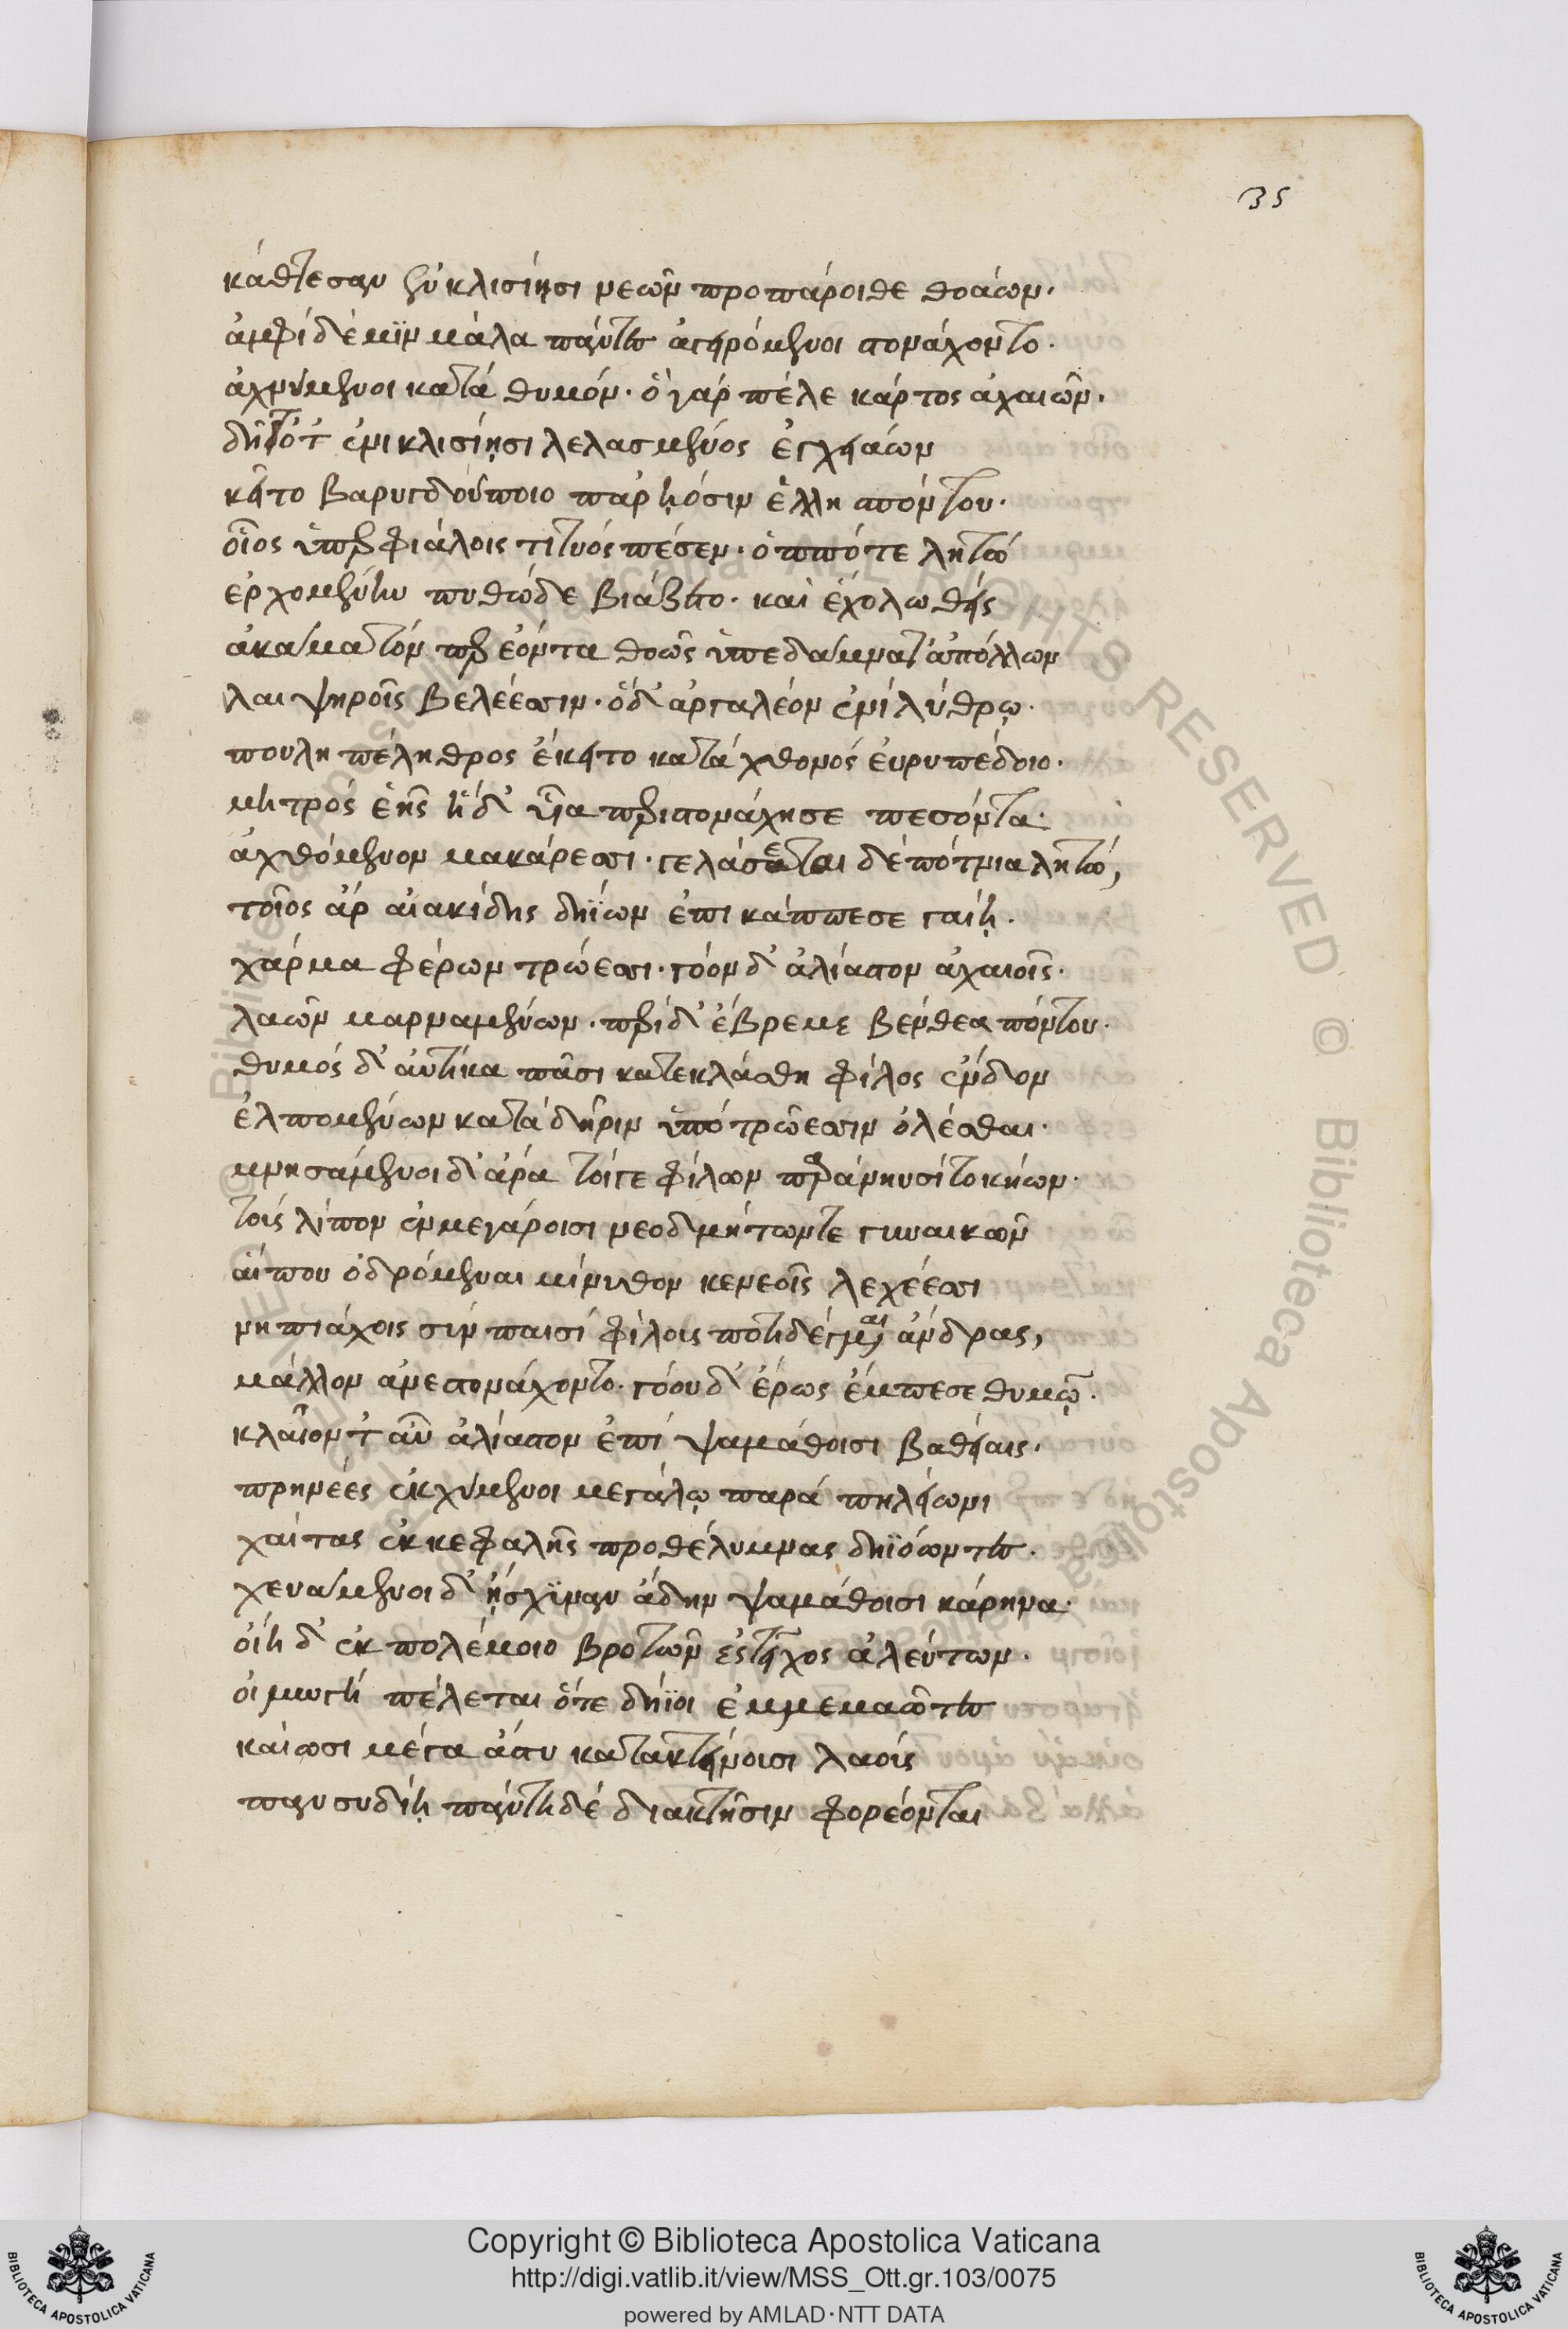 35
κάθτεσαν ἐν κλισίησι νεῶν προπάροιθε θοάων.
ἀμφὶ δέ μϊν μάλα πάντες ἀγειρόμενοι στονάχοντο.
ἀχνύμενοι κατὰ θυμόν. ὁ γὰρ πέλε κάρτος ἀχαιῶν.
δὴ τότ' ἐνι κλισίῃσι λελασμένος ἐγχειάων
κεῖτο βαρυγδούποιο παρ' ἠόσιν ἑλλησπόντου.
οἷος ὑπερφιάλοις τιτυὸς πέσεν. ὁππότε λητὼ
ἐρχομένην πυθῶδε βιάζετο. καὶ ἐχολωθεὶς
ἀκάματόν περ ἐόντα θοῶς ὑπεδάμνατ' ἀπόλλων
λαιψηροῖς βελέεσσιν. ὁ δ' ἀργαλέον ἐνὶ λύθρῳ.
πουλη πέληθρος ἔκειτο κατὰ χθονὸς εὐρυπέδοιο.
μητρὸς ἑῆς ἡ δ' υἷα περιστονάχησε πεσόντα.
ἀχθόμενον μακάρεσσι. γελάσεται δὲ πότνια λητώ,
τοῖος ἄρ αἰακίδης δηΐων ἐπι κάππεσε γαίῃ.
χάρμα φέρων τρώεσσι. γόον δ' ἀλίαστον ἀχαιοῖς.
λαῶν μαρναμένων. περὶ δ' ἔβρεμε βένθεα πόντου.
θυμὸς δ' αὐτίκα πᾶσι κατεκλάσθη φίλος ἔνδον
ἐλπομένων κατὰ δῆριν ὑπὸ τρώεσσιν ὀλέσθαι.
μνησάμενοι δ' ἄρα τοίγε φίλων παρὰ νηυσὶ τοκήων.
τοὺς λίπον ἐν μεγάροισι νεοδμήτωντε γυναικῶν
αἵπου ὀδρόμεναι μίνυθον κενεοῖς λεχέεσσι
νηπιάχοις σὺν παισὶ φίλοις ποτιδέγμεναι ἄνδρας,
μᾶλλον ἀνεστονάχοντο. γόου δ' ἔρως ἔμπεσε θυμῷ.
κλαῖον τ' αὖ ἀλίαστον ἐπὶ ψαμάθοισι βαθείαις.
πρηνέες ἐκχύμενοι μεγάλῳ παρὰ πηλείωνι
χαίτας ἐκ κεφαλῆς προθελύμνας δηϊόωντες.
χευάμενοι δ' ᾔσχϊναν ἄδην ψαμάθοισι κάρηνα.
οἵη δ' ἐκ πολέμοιο βροτῶν ἐς τεῖχος ἀλέντων.
οἰμωγὴ πέλεται ὅτε δήϊοι ἐμμεμαῶτες
καίωσι μέγα ἄστυ κατακτείνοισι λαοὺς
πανσυδίῃ πάντη δὲ διὰ κτῆσιν φορέονται
Copyright © Biblioteca Apostolica Vaticana
http://digi.vatlib.it/view/MSS_Ott.gr.103/0075
powered by AMLAD·NTT DATA